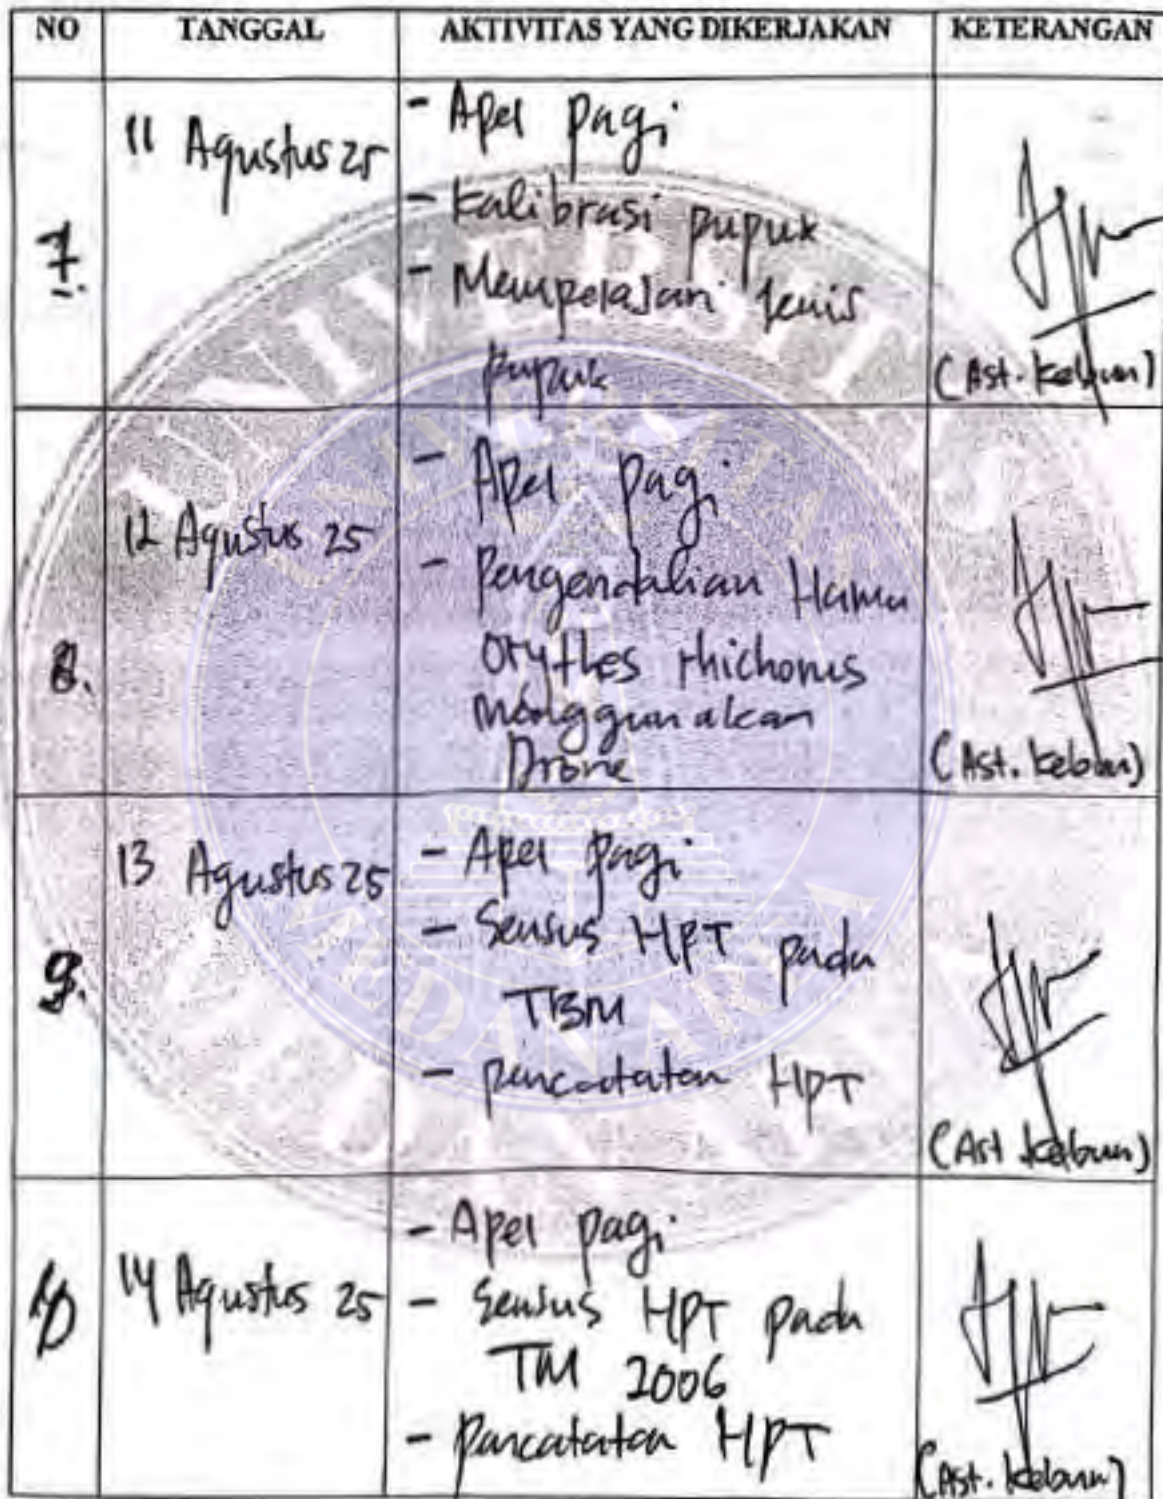 NO TANGGAL AKTIVITAS YANG DIKERJAKAN KETERANGAN
7. 11 Agustus 25
- Apel pagi
- Kalibrasi pupuk
- Mempelajari jenis
pupuk
(Ast. kebun)
8. 12 Agustus 25
- Apel pagi
- Pengendalian Hama
Orythes rhichorus
menggunakan
Drone
(Ast. kebun)
9. 13 Agustus 25
- Apel pagi
- Sensus HPT pada
TBM
- pencatatan HPT
(Ast kebun)
10 14 Agustus 25
- Apel pagi
- Sensus HPT pada
TM 2006
- Pencatatan HPT
(Ast. kebun)
UNIVERSITAS
MEDAN AREA